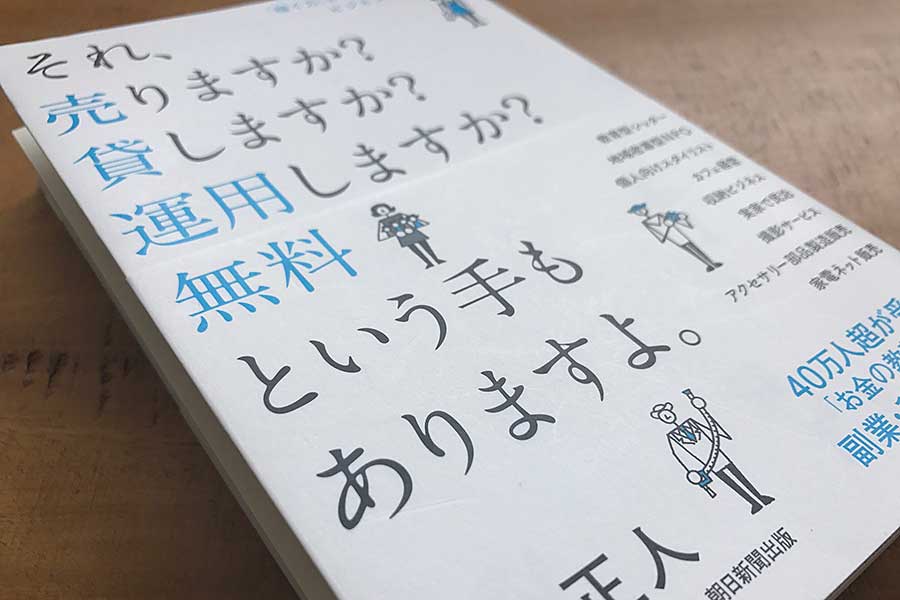 それ、
売りますか?
貸しますか?
運用しますか?
無料
という手も
ありますよ。
シッター
個人向けスタイリスト
カフェ経営
収納ビジネス
実家で民泊
撮影サービス
アクセサリー部品製造販売
家電ネット販売
40万人超が受
「お金の教
副業・
正人
朝日新聞出版